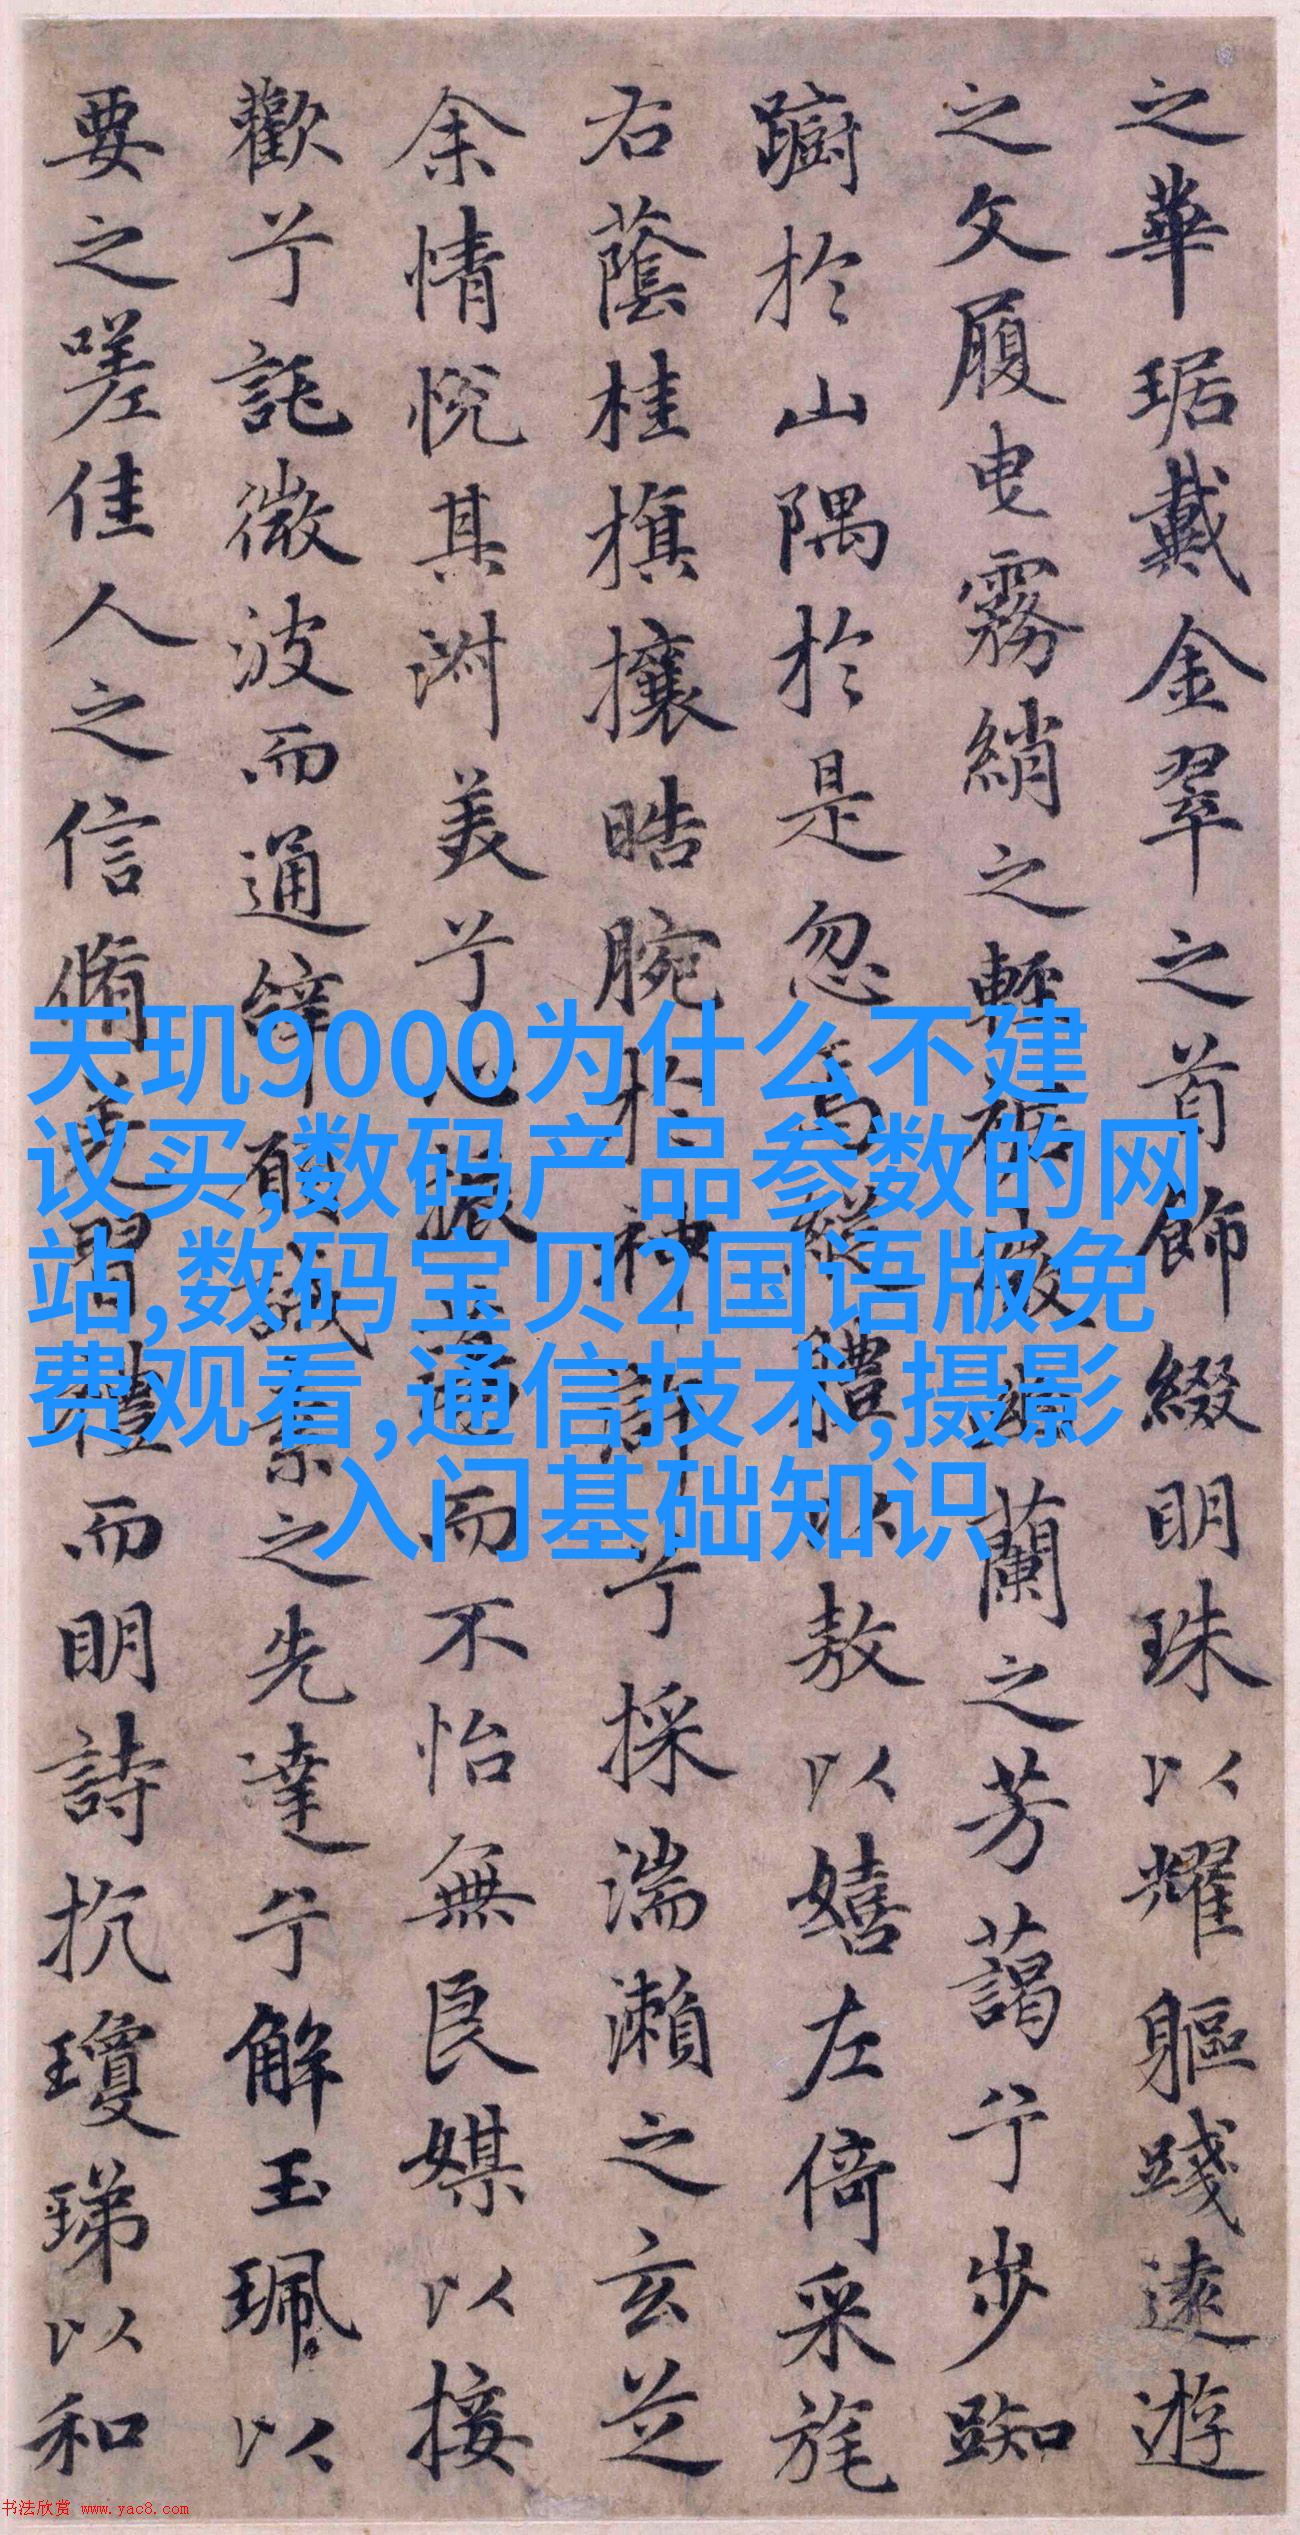 之華琚戴金翠之首飾綴明珠以耀軀踐遠遊
之文履曳霧綃之輕裾微幽蘭之芳藹兮步踟
躕於山隅於是忽焉縱體以敖以嬉左倚采旄
右蔭桂旗攘皓腕於神滸兮採湍瀨之玄芝
余情悅其淑美兮心振蕩而不怡無良媒以接
歡兮託微波而通辞兮願誠素之先達兮解玉珮以
要之嗟佳人之信脩羌習禮而明詩抗瓊珶以和
天玑9000为什么不建
议买,数码产品参数的网
站,数码宝贝2国语版免
费观看,通信技术,摄影
入门基础知识
书法欣赏 www.yac8.com